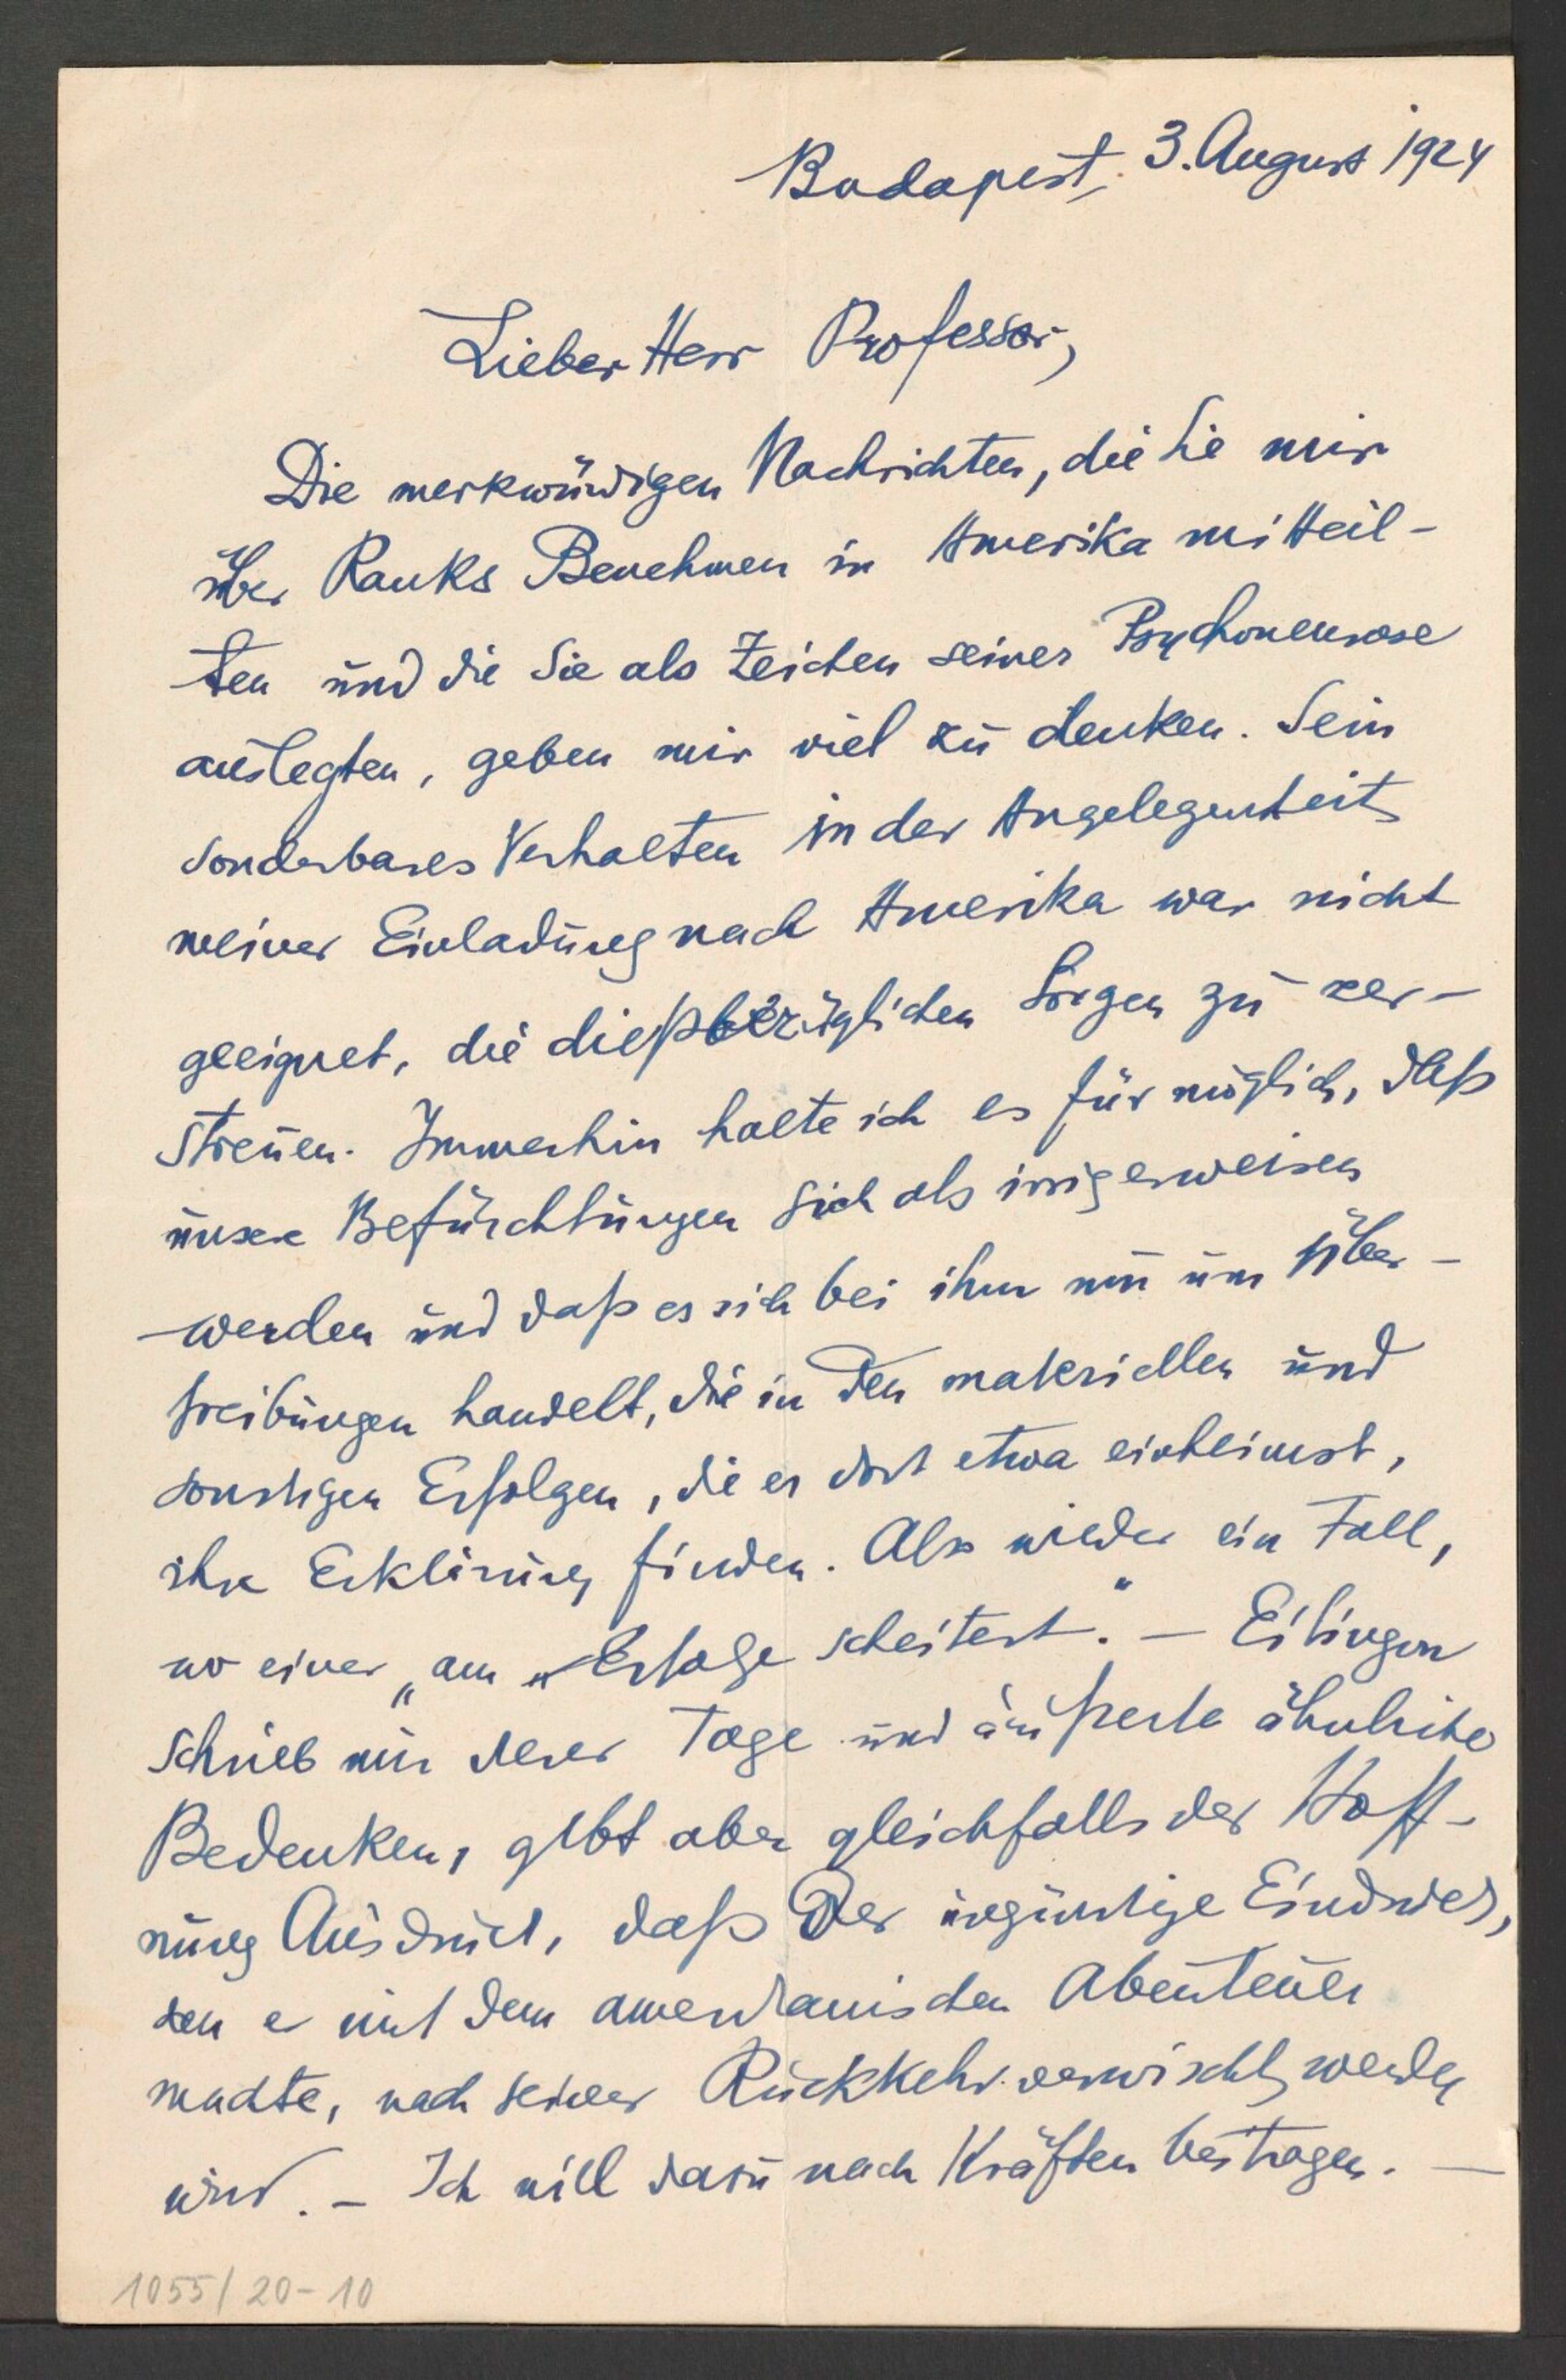 Budapest, 3. August 1924
Lieber Herr Professor,
Die merkwürdigen Nachrichten, die Sie mir
über Ranks Benehmen in Amerika mitteil-
ten und die Sie als Zeichen seiner Psychoneurose
auslegten, geben mir viel zu denken. Sein
sonderbares Verhalten in der Angelegenheit
meiner Einladung nach Amerika war nicht
geeignet, die dießbezüglichen Sorgen zu zer-
streuen. Immerhin halte ich es für möglich, daß
unsere Befürchtungen sich als irrig erweisen
werden und daß es sich bei ihm nur um Über-
treibungen handelt, die in den materiellen und
sonstigen Erfolgen, die er dort etwa einheimst,
ihre Erklärung finden. Also wieder ein Fall,
wo einer „am Erfolge scheitert." – Eitingon
schrieb mir dieser Tage und äußerte ähnliche
Bedenken, gibt aber gleichfalls der Hoff-
nung Ausdruck, daß der ungünstige Eindruck,
den er mit dem amerikanischen Abenteuer
machte, nach seiner Rückkehr verwischt werden
wird. – Ich will dazu nach Kräften beitragen. —
1055/20-10